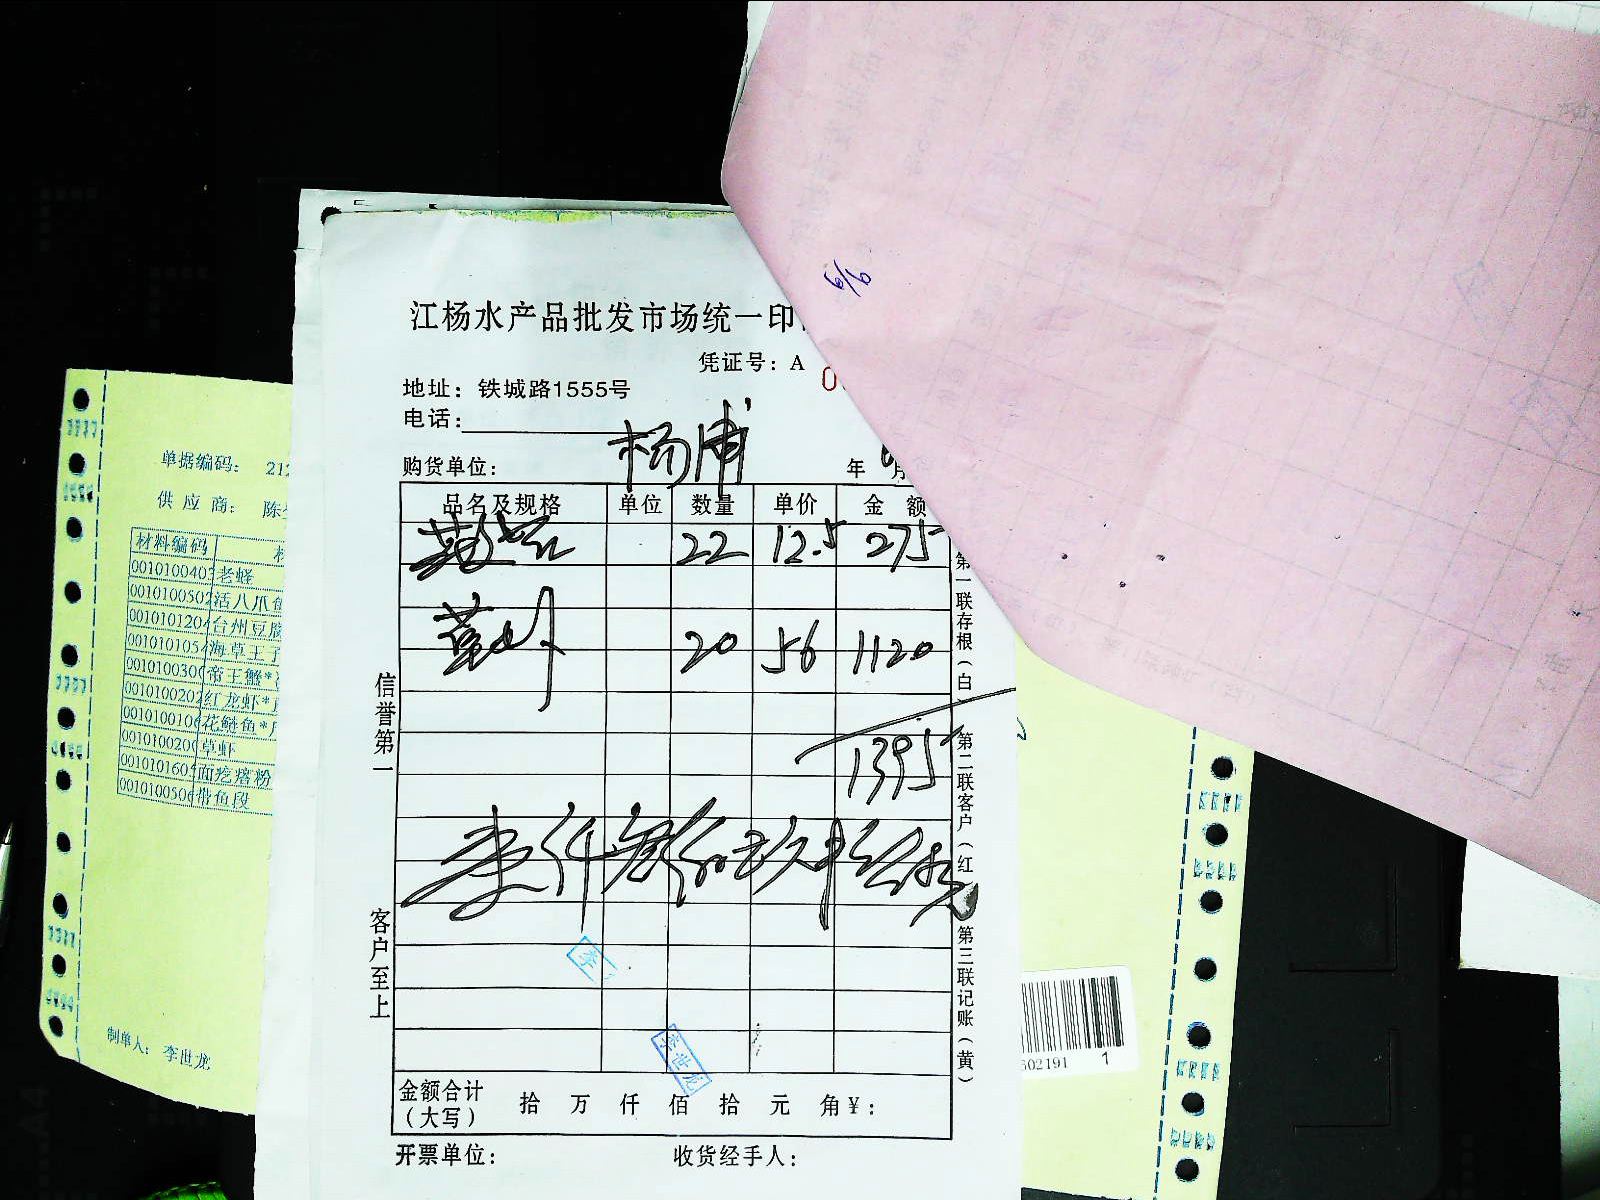 江杨水产品批发市场统一印
凭证号：A 0
地址：铁城路1555号
电话：
购货单位： 杨浦 年 月
品名及规格 单位 数量 单价 金 额
22 12.5 275
草虾 20 56 1120
1395
壹仟叁佰玖拾伍
金额合计（大写） 拾 万 仟 佰 拾 元 角 ¥：
开票单位： 收货经手人：
信誉第一
客户至上
第一联存根（白）
第二联客户（红
第三联记账（黄）
李
李世龙
单据编码： 212
供应商： 陈
材料编码
001010040 老蛏
0010100502 活八爪
001010120 台州豆腐
001010105 海草王子
001010030 帝王蟹*
001010020 红龙虾*
001010010 花鲢鱼*
001010020 草虾
001010160 面疙瘩粉
001010050 带鱼段
制单人： 李世龙
502191 1
9/9